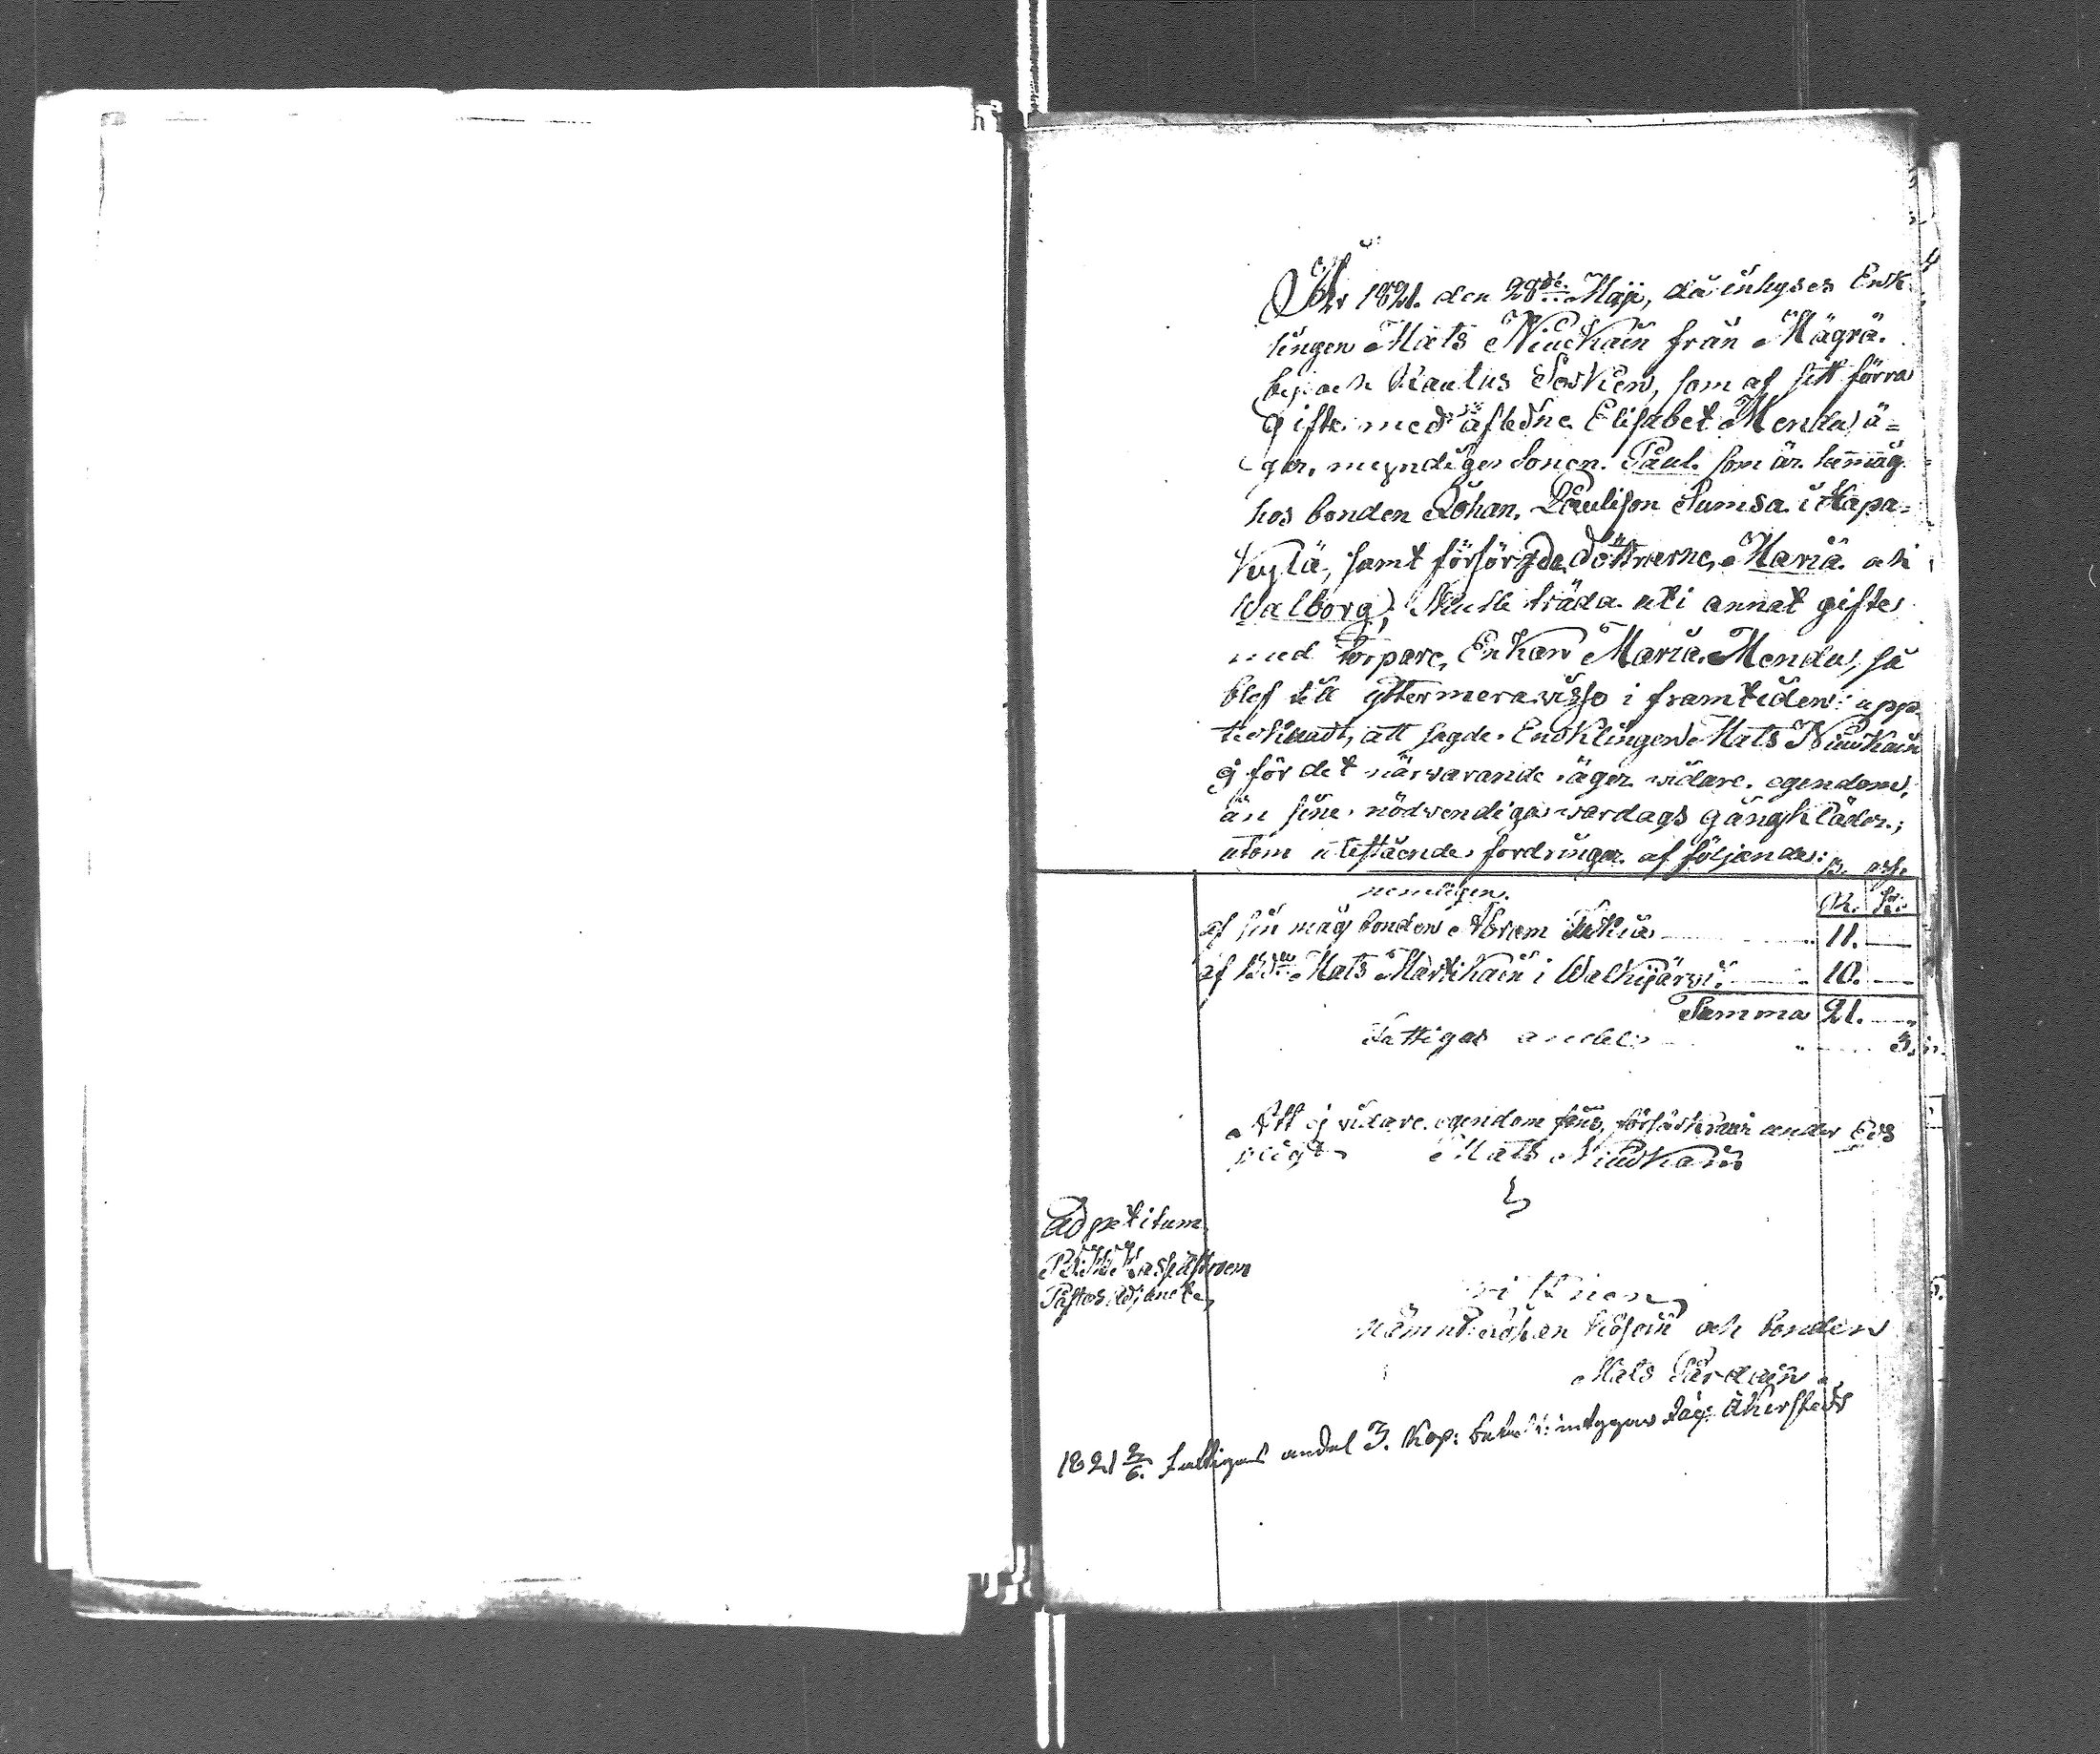 År 1821. den 28de Maji, då inhyses Enk
lingen Mats Niuckain från Mägrä
by och Kautus Socken, som af sitt förra
gifte med afledne Elisabet Mendu ä=
ger, myndige sonen Paul som är hemmåg
hos bonden Johan Paulison Sumsa i Hapa=
kylä, samt försörgde Döttrarne, Maria och
Walborg), skulle träda uti annat gifte
med Enkan Maria Mendu, så
blef till yttermera visso i framtiden upp
tecknadt, att sagde Encklingen Mats Niuckain
ej för det närvarande äger vidare egendom,
än sine nödvendiga vardags gångkläder;
utom utestående fordringar af följande:
nemligen.
af sin måg bonden Abram 11.
af Bdn Mats Martikain i Walkijärvi 10.
Summa 21.
Fattigas andel 3.
Att ej vidare egendom fins, försäkrar under Eds
pligt Mats Niuckain
Ad petitum
Pastors Adjunct
Vittnen
Nämnd: Johan och bonden
Mats Pärdäin
1821 2/6. fattigas andel 3. Kop: betalt: intygar Åkerstedt